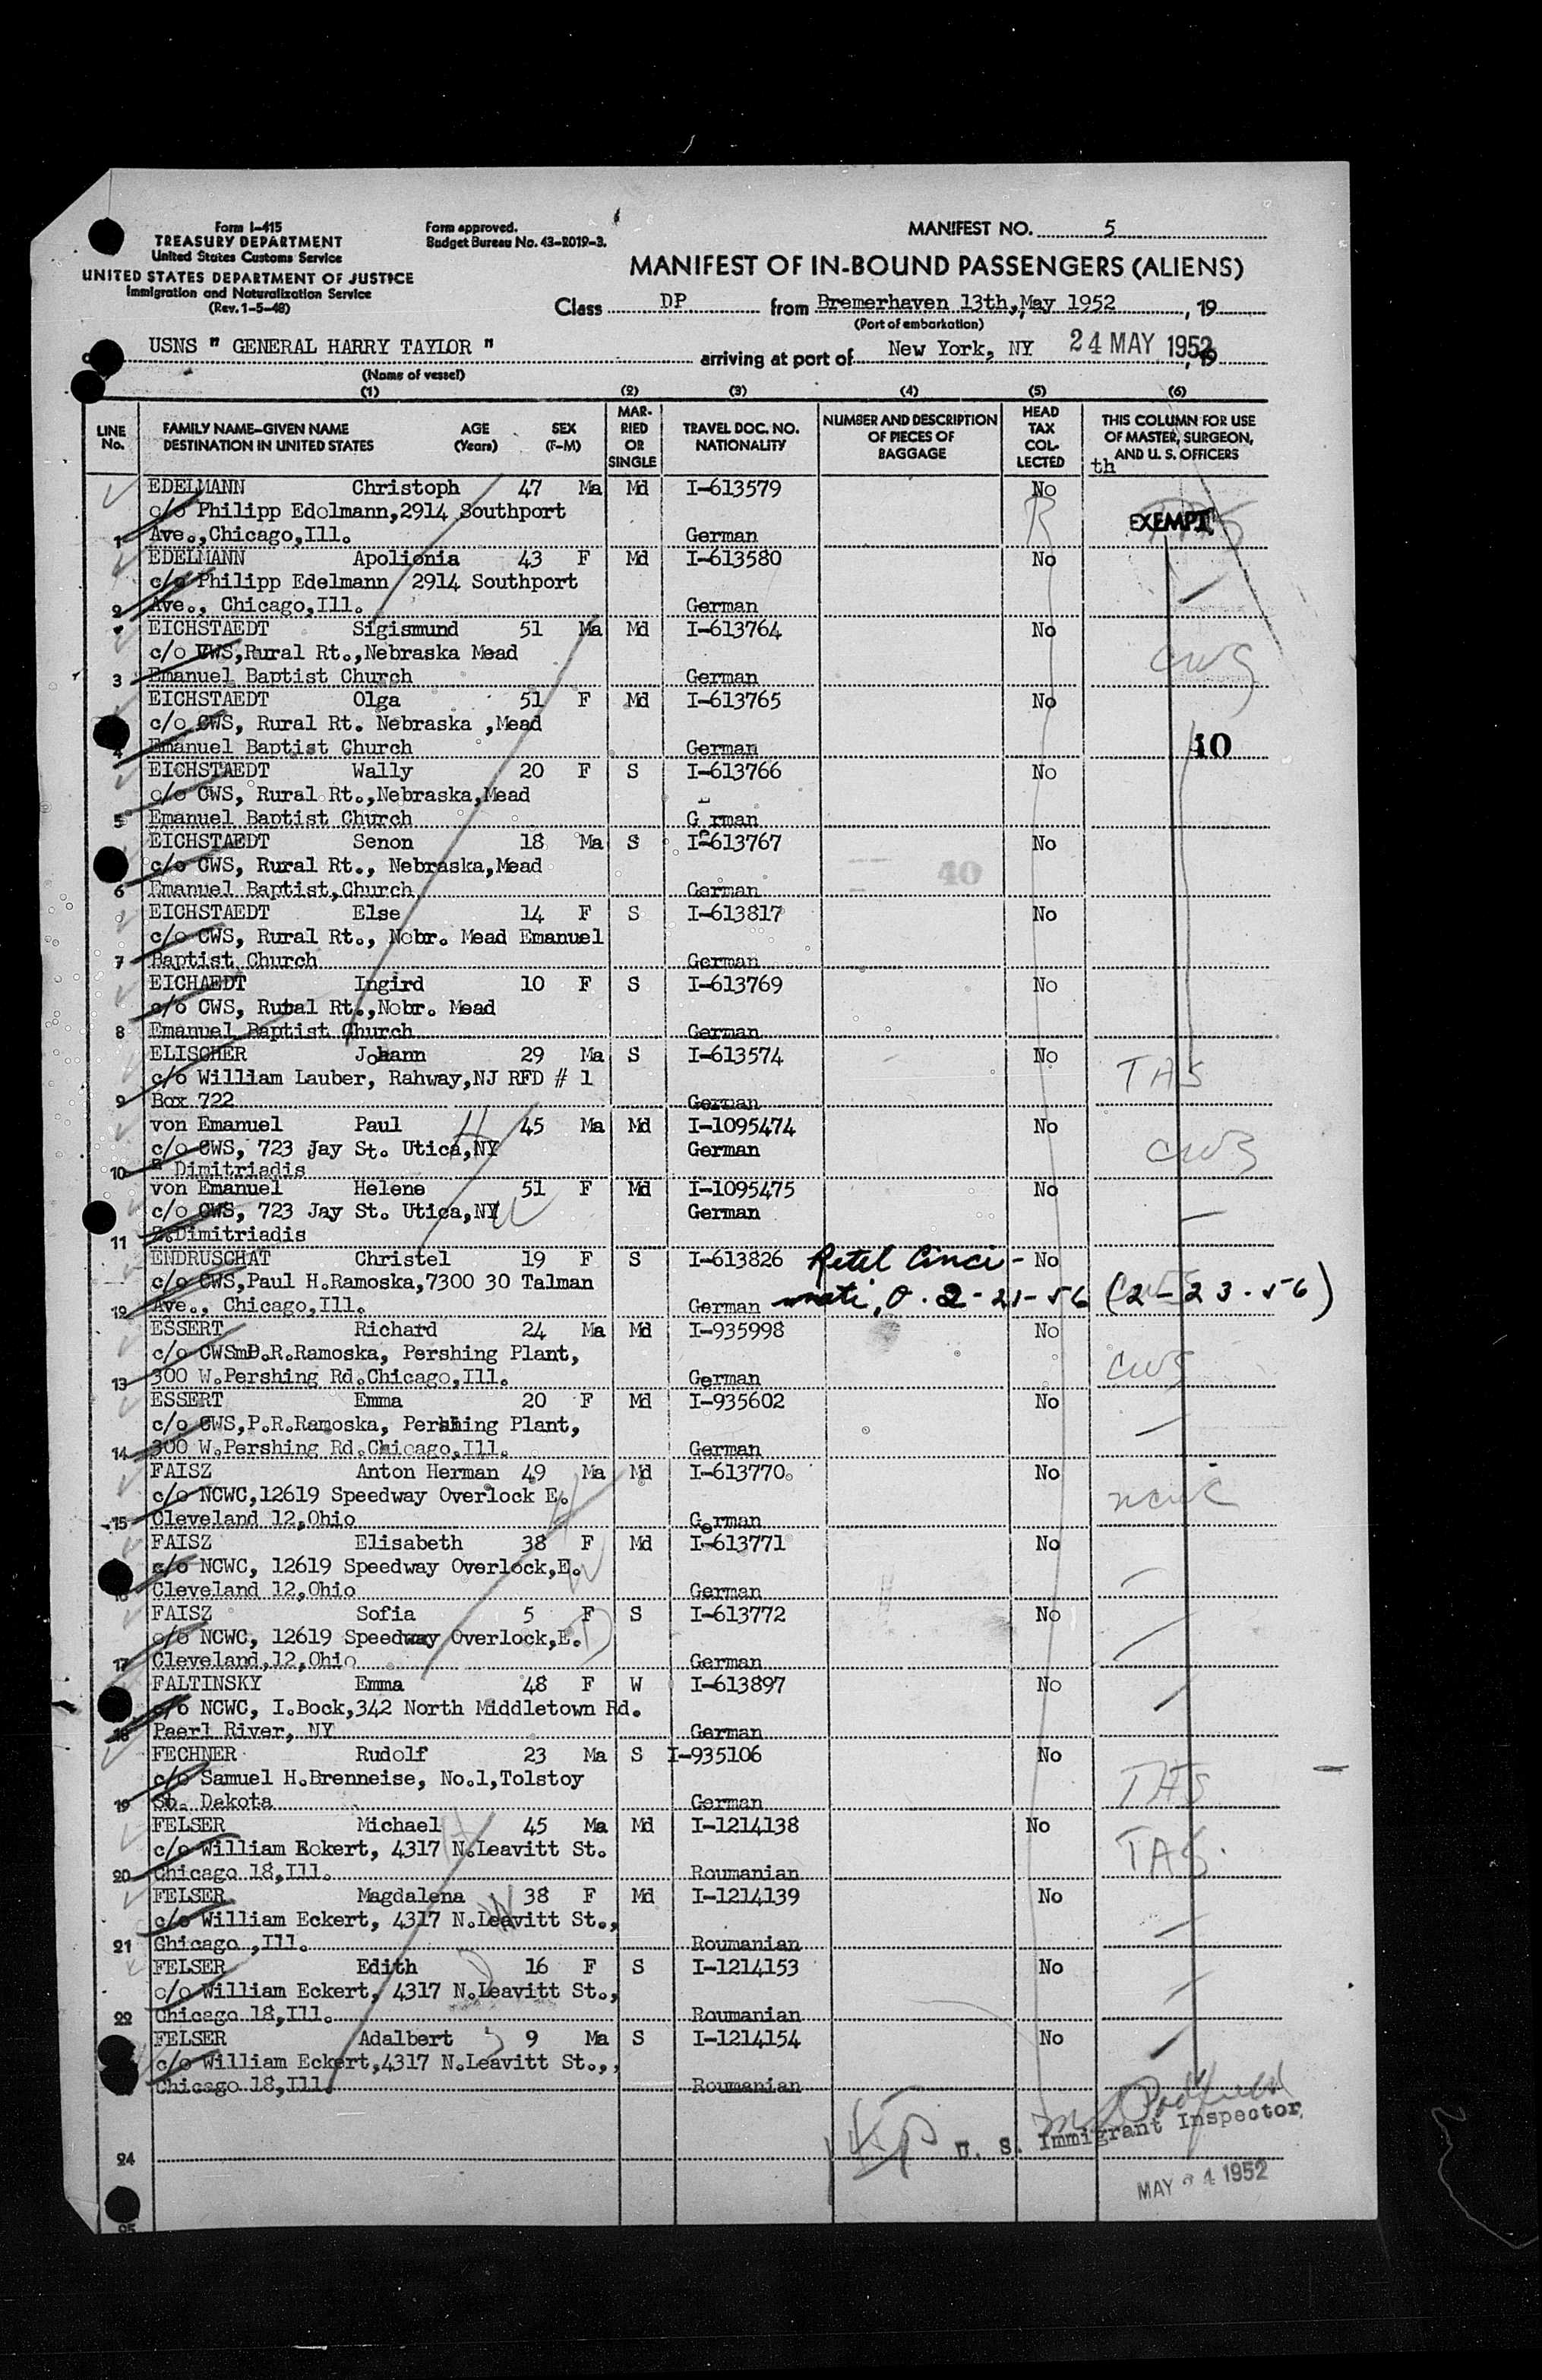 Form I-415
TREASURY DEPARTMENT
United States Customs Service
UNITED STATES DEPARTMENT OF JUSTICE
Immigration and Naturalization Service
(Rev. 1-5-48)
Form approved.
Budget Bureau No. 43-R019-3.
MANIFEST NO. 5
MANIFEST OF IN-BOUND PASSENGERS (ALIENS)
Class DP from Bremerhaven 13th, May 1952, 19
(Port of embarkation)
USNS " GENERAL HARRY TAYLOR " arriving at port of New York, NY 24 MAY 1952
(Name of vessel)
(1) (2) (3) (4) (5) (6)
LINE No. FAMILY NAME-GIVEN NAME DESTINATION IN UNITED STATES AGE (Years) SEX (F-M) MARRIED OR SINGLE TRAVEL DOC. NO. NATIONALITY NUMBER AND DESCRIPTION OF PIECES OF BAGGAGE HEAD TAX COLLECTED THIS COLUMN FOR USE OF MASTER, SURGEON, AND U. S. OFFICERS
th
EDELMANN Christoph 47 Ma Md I-613579 No
c/o Philipp Edolmann,2914 Southport EXEMPT
1 Ave.,Chicago,Ill. German
EDELMANN Apolionia 43 F Md I-613580 No
c/o Philipp Edelmann 2914 Southport
2 Ave., Chicago,Ill. German
EICHSTAEDT Sigismund 51 Ma Md I-613764 No
c/o CWS,Rural Rt.,Nebraska Mead CWS
3 Emanuel Baptist Church German
EICHSTAEDT Olga 51 F Md I-613765 No
c/o CWS, Rural Rt. Nebraska ,Mead
4 Emanuel Baptist Church German 10
EICHSTAEDT Wally 20 F S I-613766 No
c/o CWS, Rural Rt.,Nebraska,Mead
5 Emanuel Baptist Church German
EICHSTAEDT Senon 18 Ma S I-613767 No
c/o CWS, Rural Rt., Nebraska,Mead 40
6 Emanuel Baptist,Church German
EICHSTAEDT Else 14 F S I-613817 No
c/o CWS, Rural Rt., Nobr. Mead Emanuel
7 Baptist Church German
EICHAEDT Ingird 10 F S I-613769 No
c/o CWS, Rural Rt.,Nobr. Mead
8 Emanuel Baptist Church German
ELISCHER Johann 29 Ma S I-613574 No
c/o William Lauber, Rahway,NJ RFD # 1 TAS
9 Box 722 German
von Emanuel Paul 45 Ma Md I-1095474 No
c/o CWS, 723 Jay St. Utica,NY German CWS
10 Dimitriadis
von Emanuel Helene 51 F Md I-1095475 No
c/o CWS, 723 Jay St. Utica,NY German
11 Dimitriadis
ENDRUSCHAT Christel 19 F S I-613826 Retel Cinci- No
c/o CWS,Paul H.Ramoska,7300 30 Talman
12 Ave., Chicago,Ill. German nati, O. 2-21-56 (2-23-56)
ESSERT Richard 24 Ma Md I-935998 No
c/o CWSmP.R.Ramoska, Pershing Plant, CWS
13 300 W.Pershing Rd.Chicago,Ill. German
ESSERT Emma 20 F Md I-935602 No
c/o CWS,P.R.Ramoska, Pershing Plant,
14 300 W.Pershing Rd.Chicago,Ill. German
FAISZ Anton Herman 49 Ma Md I-613770 No
c/o NCWC,12619 Speedway Overlock E. NCWC
15 Cleveland 12,Ohio German
FAISZ Elisabeth 38 F Md I-613771 No
c/o NCWC, 12619 Speedway Overlock,E.
16 Cleveland 12,Ohio German
FAISZ Sofia 5 F S I-613772 No
c/o NCWC, 12619 Speedway Overlock,E.
17 Cleveland,12,Ohio German
FALTINSKY Emma 48 F W I-613897 No
c/o NCWC, I.Bock,342 North Middletown Rd.
18 Paerl River, NY German
FECHNER Rudolf 23 Ma S I-935106 No
c/o Samuel H.Brenneise, No.1,Tolstoy TAS
19 So. Dakota German
FELSER Michael 45 Ma Md I-1214138 No
c/o William Eckert, 4317 N.Leavitt St. TAS
20 Chicago 18,Ill. Roumanian
FELSER Magdalena 38 F Md I-1214139 No
c/o William Eckert, 4317 N.Leavitt St.,
21 Chicago ,Ill. Roumanian
FELSER Edith 16 F S I-1214153 No
c/o William Eckert, 4317 N.Leavitt St.,
22 Chicago 18,Ill. Roumanian
FELSER Adalbert 9 Ma S I-1214154 No
c/o William Eckert,4317 N.Leavitt St.,,
Chicago 18,Ill. Roumanian
U. S. Immigrant Inspector
24
MAY 24 1952
25